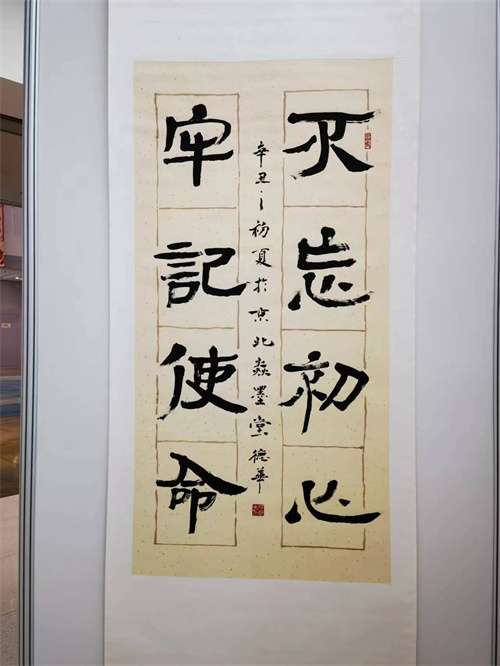 不忘初心
牢記使命
辛丑之初夏於京北焱墨堂德華